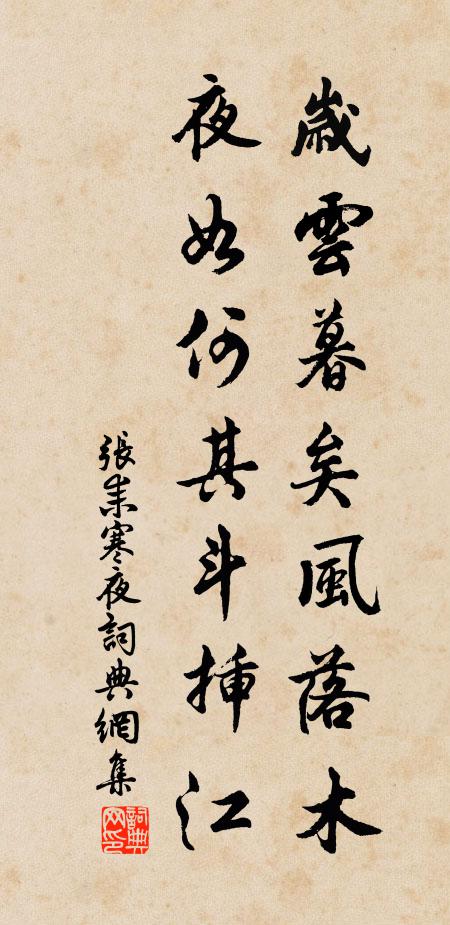 歲雲暮矣風落木
夜如何其斗挿江
張耒寒夜詞典網集
詞典网印